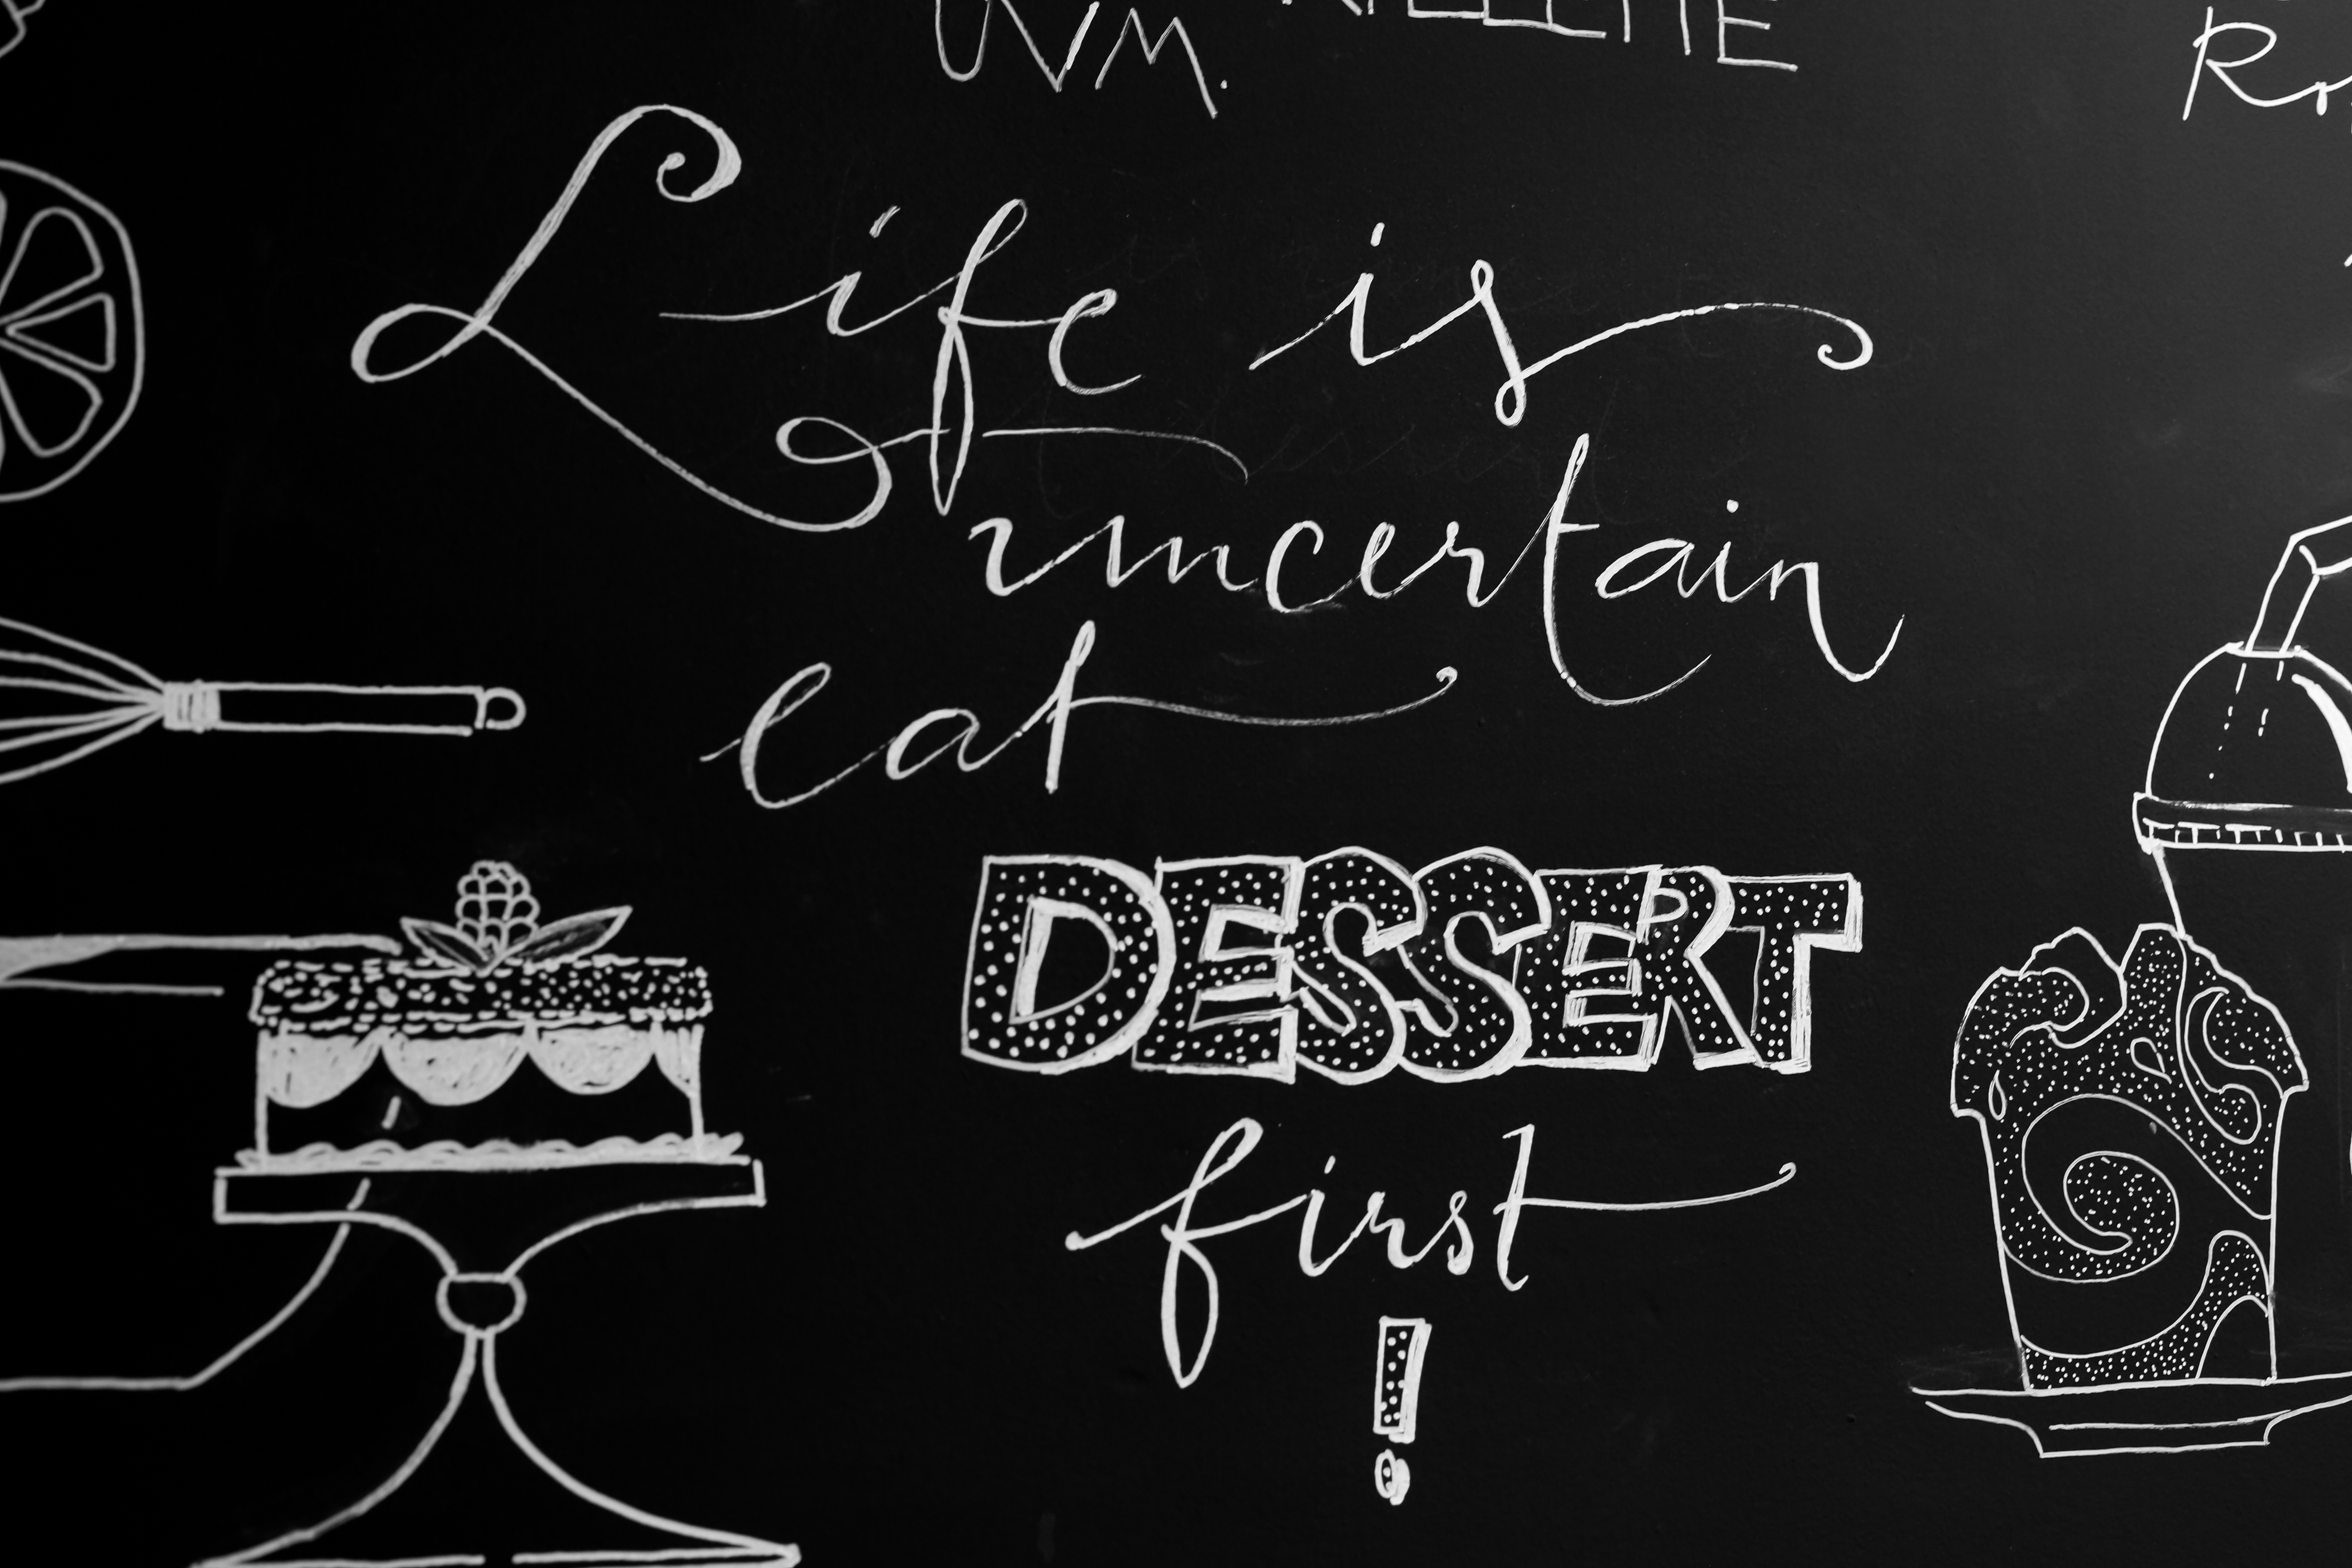 Life is
uncertain
eat
DESSERT
first
!